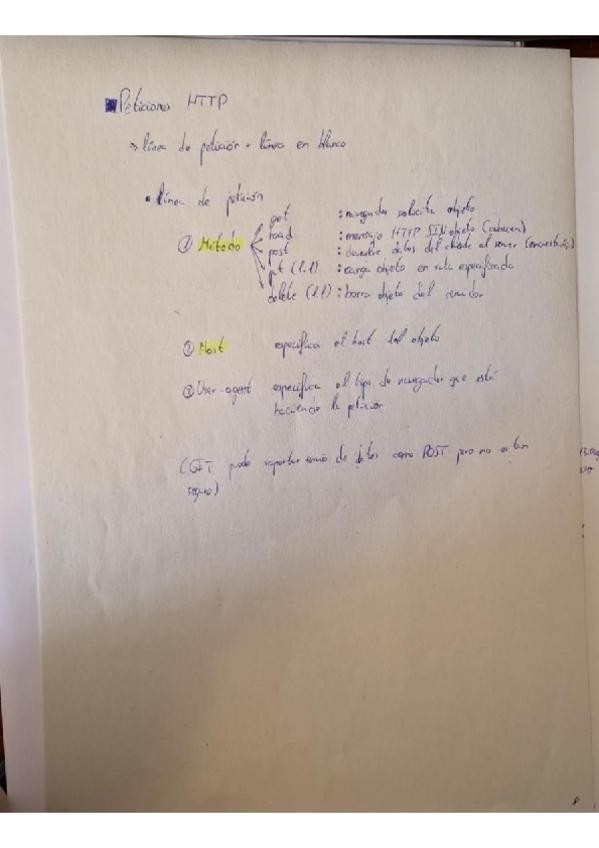 Peticiones HTTP
→ línea de petición + línea en blanco
• Línea de petición
① Método
get : navegador solicita objeto
head : mensaje HTTP SIN objeto (cabecera)
post : devuelve datos del cliente al server
put (1.1) : carga objeto en ruta especificada
delete (1.1) : borra objeto del servidor
② Host especifica el host del objeto
③ User-agent especifica el tipo de navegador que está
haciendo la petición
(GET puede soportar envío de datos como POST pero no es tan
seguro)